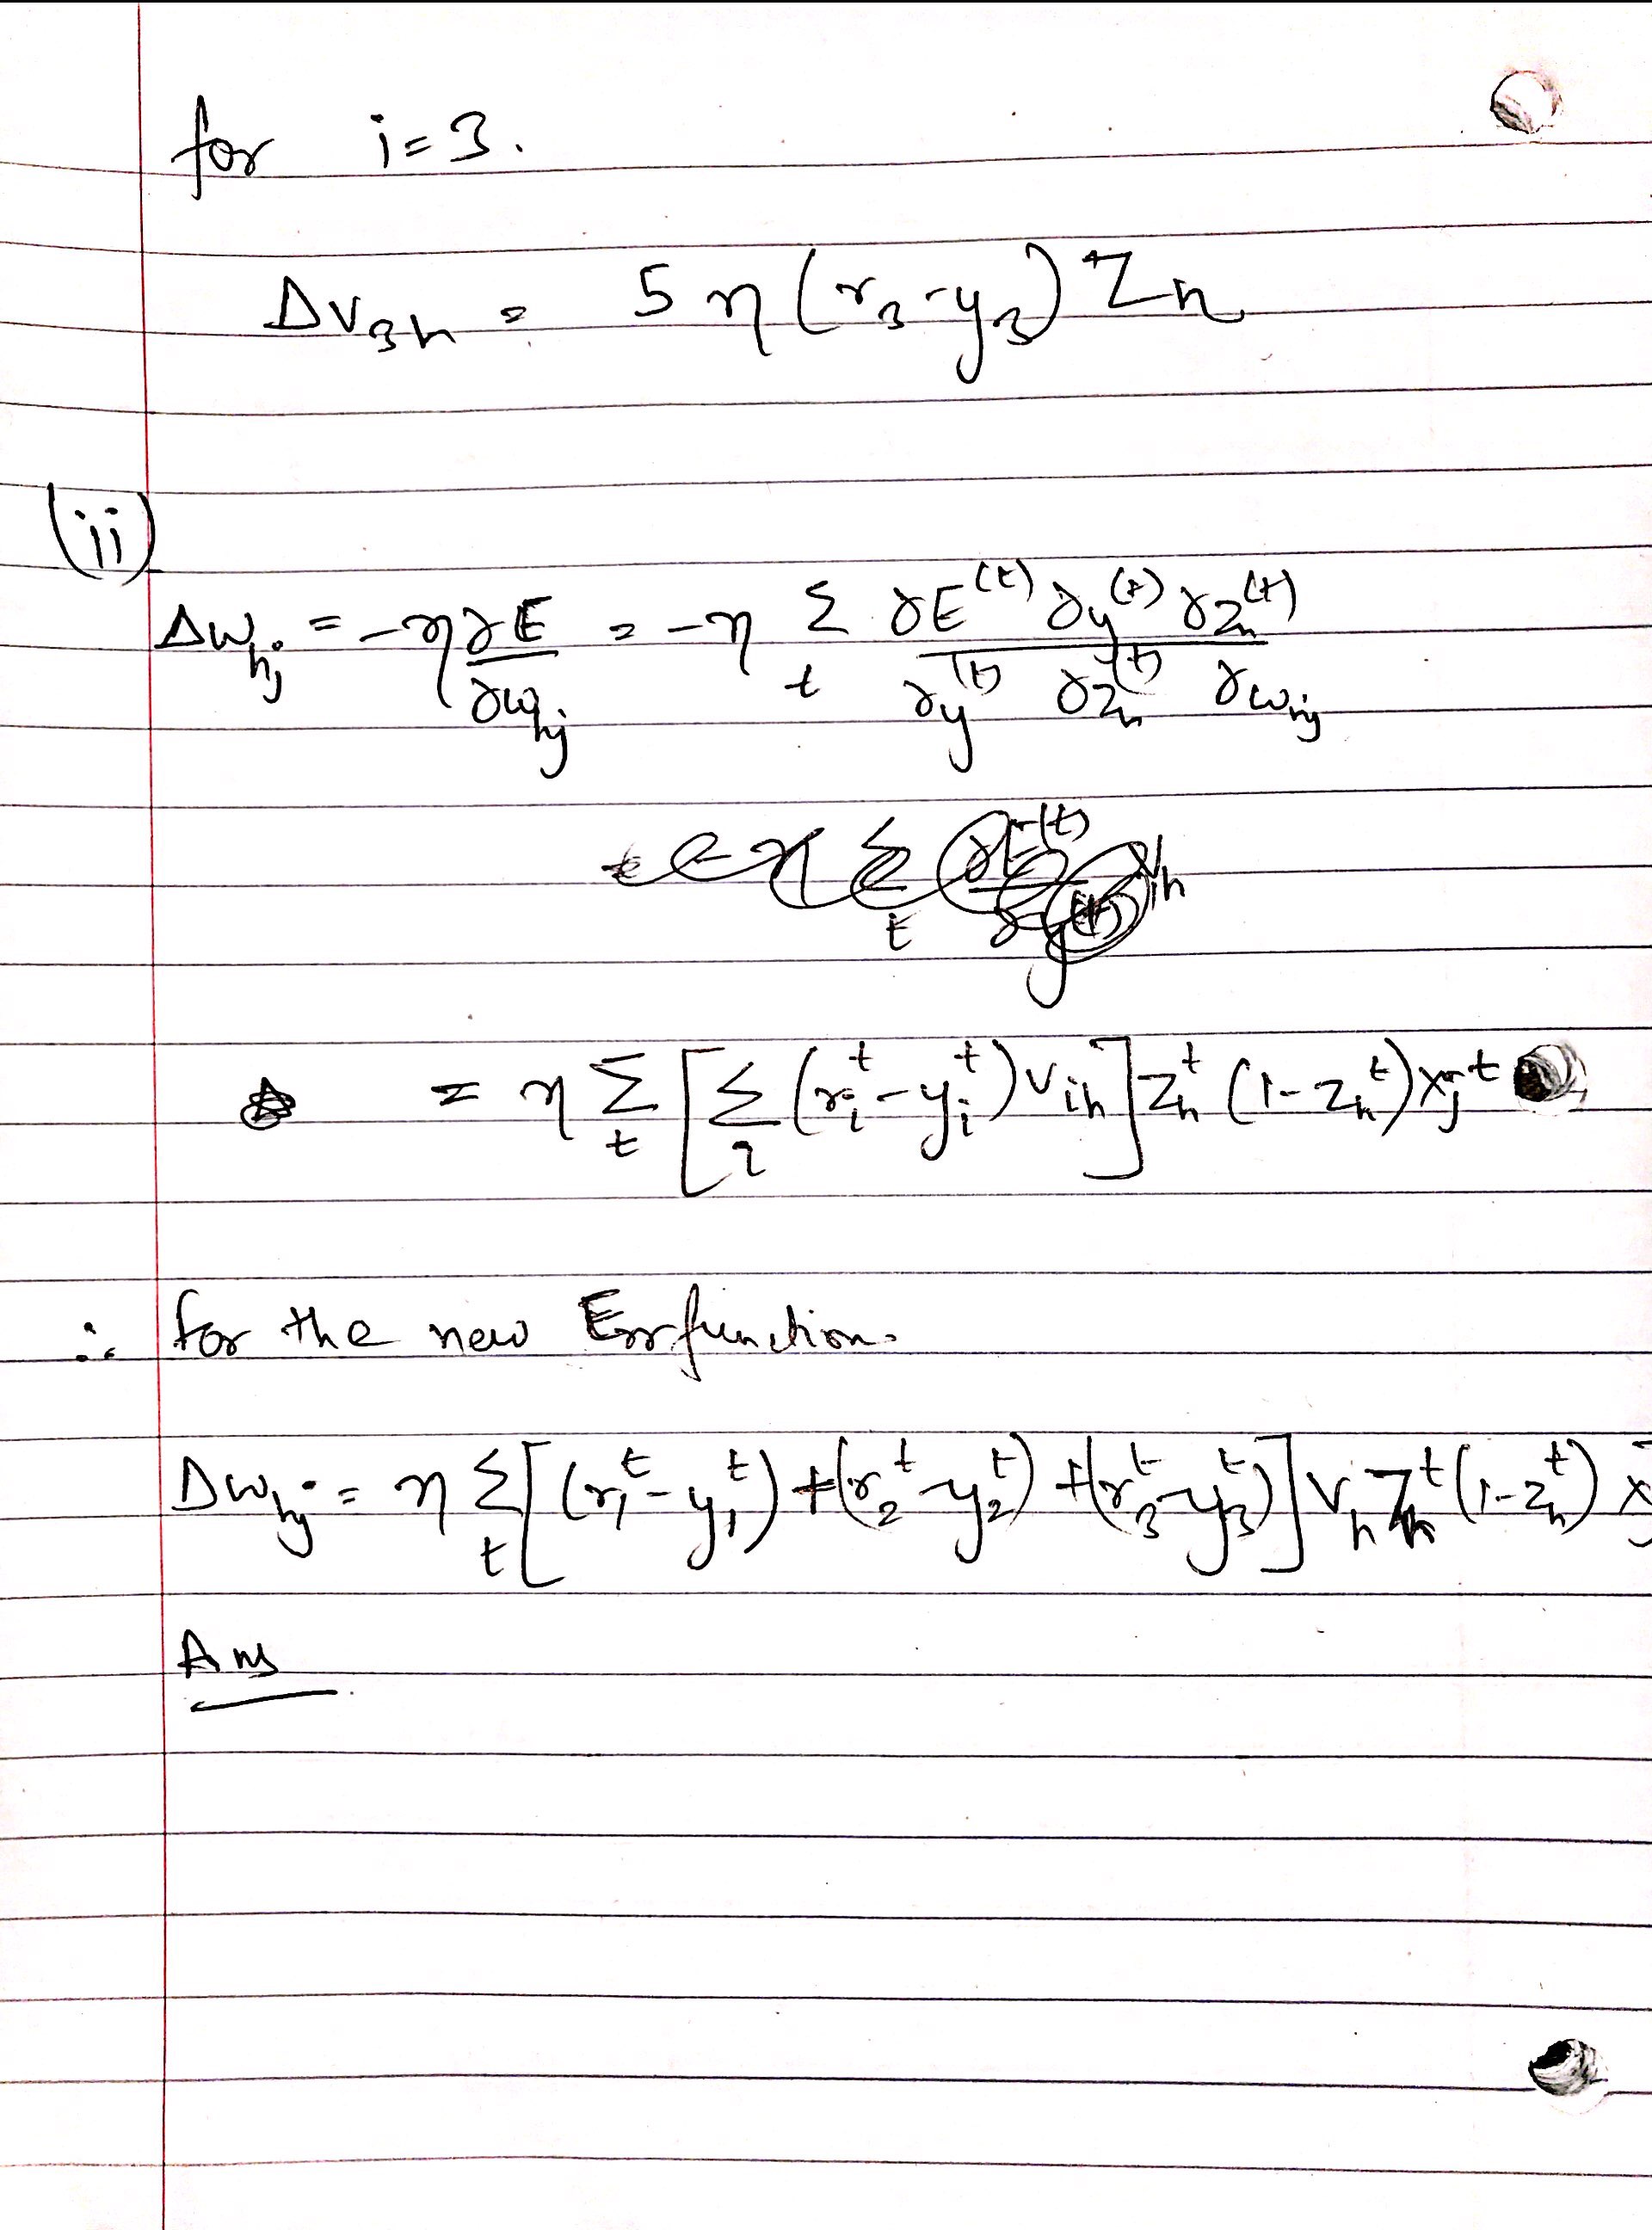 for i=3.
Δv₃ₕ = 5 η (r₃-y₃) Zₕ
(ii)
Δwₕⱼ = -η ∂E/∂wₕⱼ = -η Σₜ ∂E⁽ᵗ⁾/∂y⁽ᵗ⁾ ∂y⁽ᵗ⁾/∂zₕ⁽ᵗ⁾ ∂zₕ⁽ᵗ⁾/∂wₕⱼ
= η Σₜ [Σᵢ (rᵢᵗ-yᵢᵗ) vᵢₕ] zₕᵗ (1-zₕᵗ) xⱼᵗ
∴ for the new Err function.
Δwₕⱼ = η Σₜ [(r₁ᵗ-y₁ᵗ) + (r₂ᵗ-y₂ᵗ) + (r₃ᵗ-y₃ᵗ)] vₕ zₕᵗ (1-zₕᵗ) xⱼ
Ans